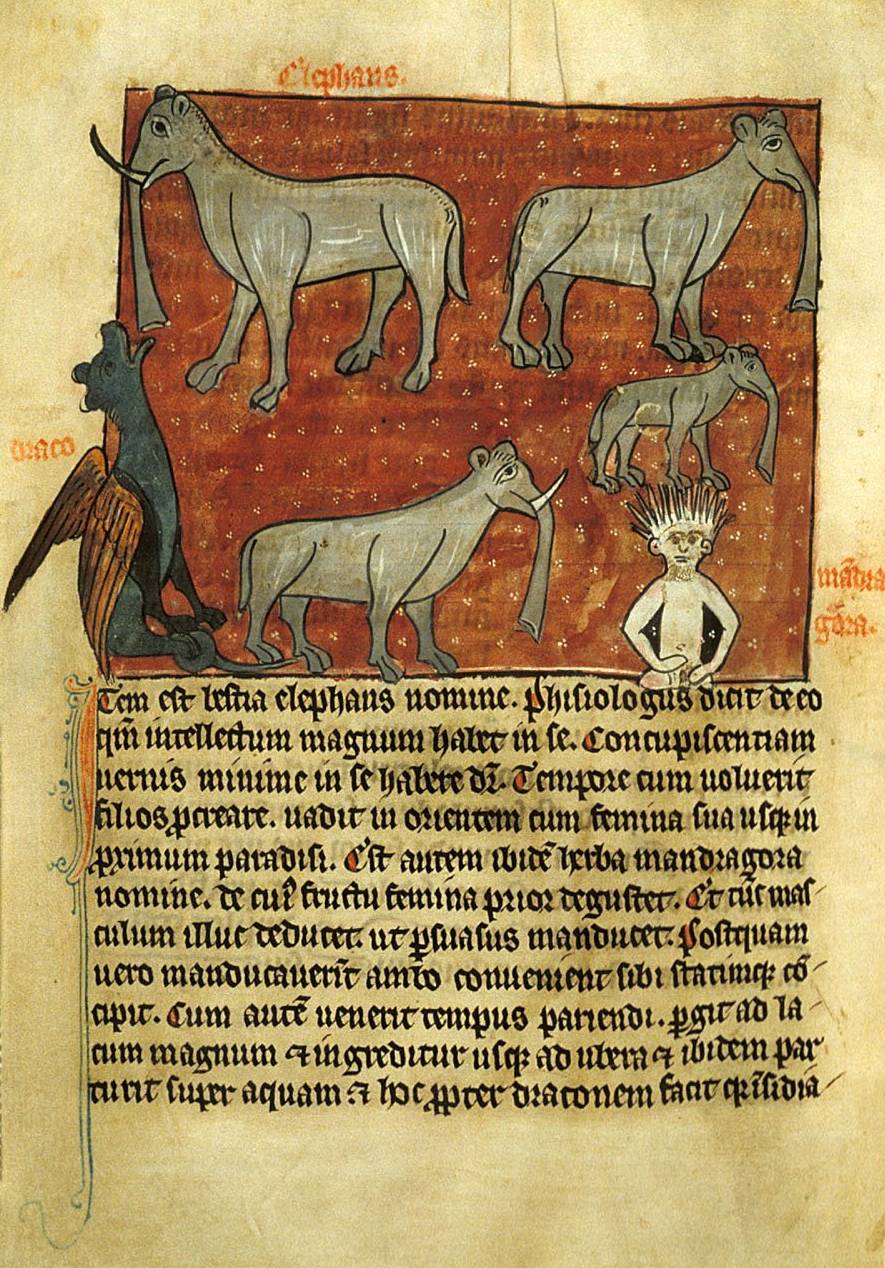 Elephans.
draco
mādra
gora.
Item est bestia elephans nomine. Phisiologus dicit de eo
qm̄ intellectum magnum habet in se. Concupiscentiam
uernis minime in se habere dr̄. Tempore cum uoluerit
filios ꝓcreare. uadit in orientem cum femina sua usqꝫ in
ꝓximum paradisi. Est autem ibidē herba mandragora
nomine. de cuiꝰ fructu femina prior degustet. Et tūc mas
culum illuc deducet. ut ꝑsuasus manducet. Postquam
uero manducauerīt ambo conuenient sibi statimqꝫ cō
cipit. Cum autē uenerit tempus pariendi. ꝑgit ad la
cum magnum ⁊ ingreditur usqꝫ ad ubera ⁊ ibidem par
turit super aquam ⁊ hoc ꝓpter draconem facit qꝛ īsidia